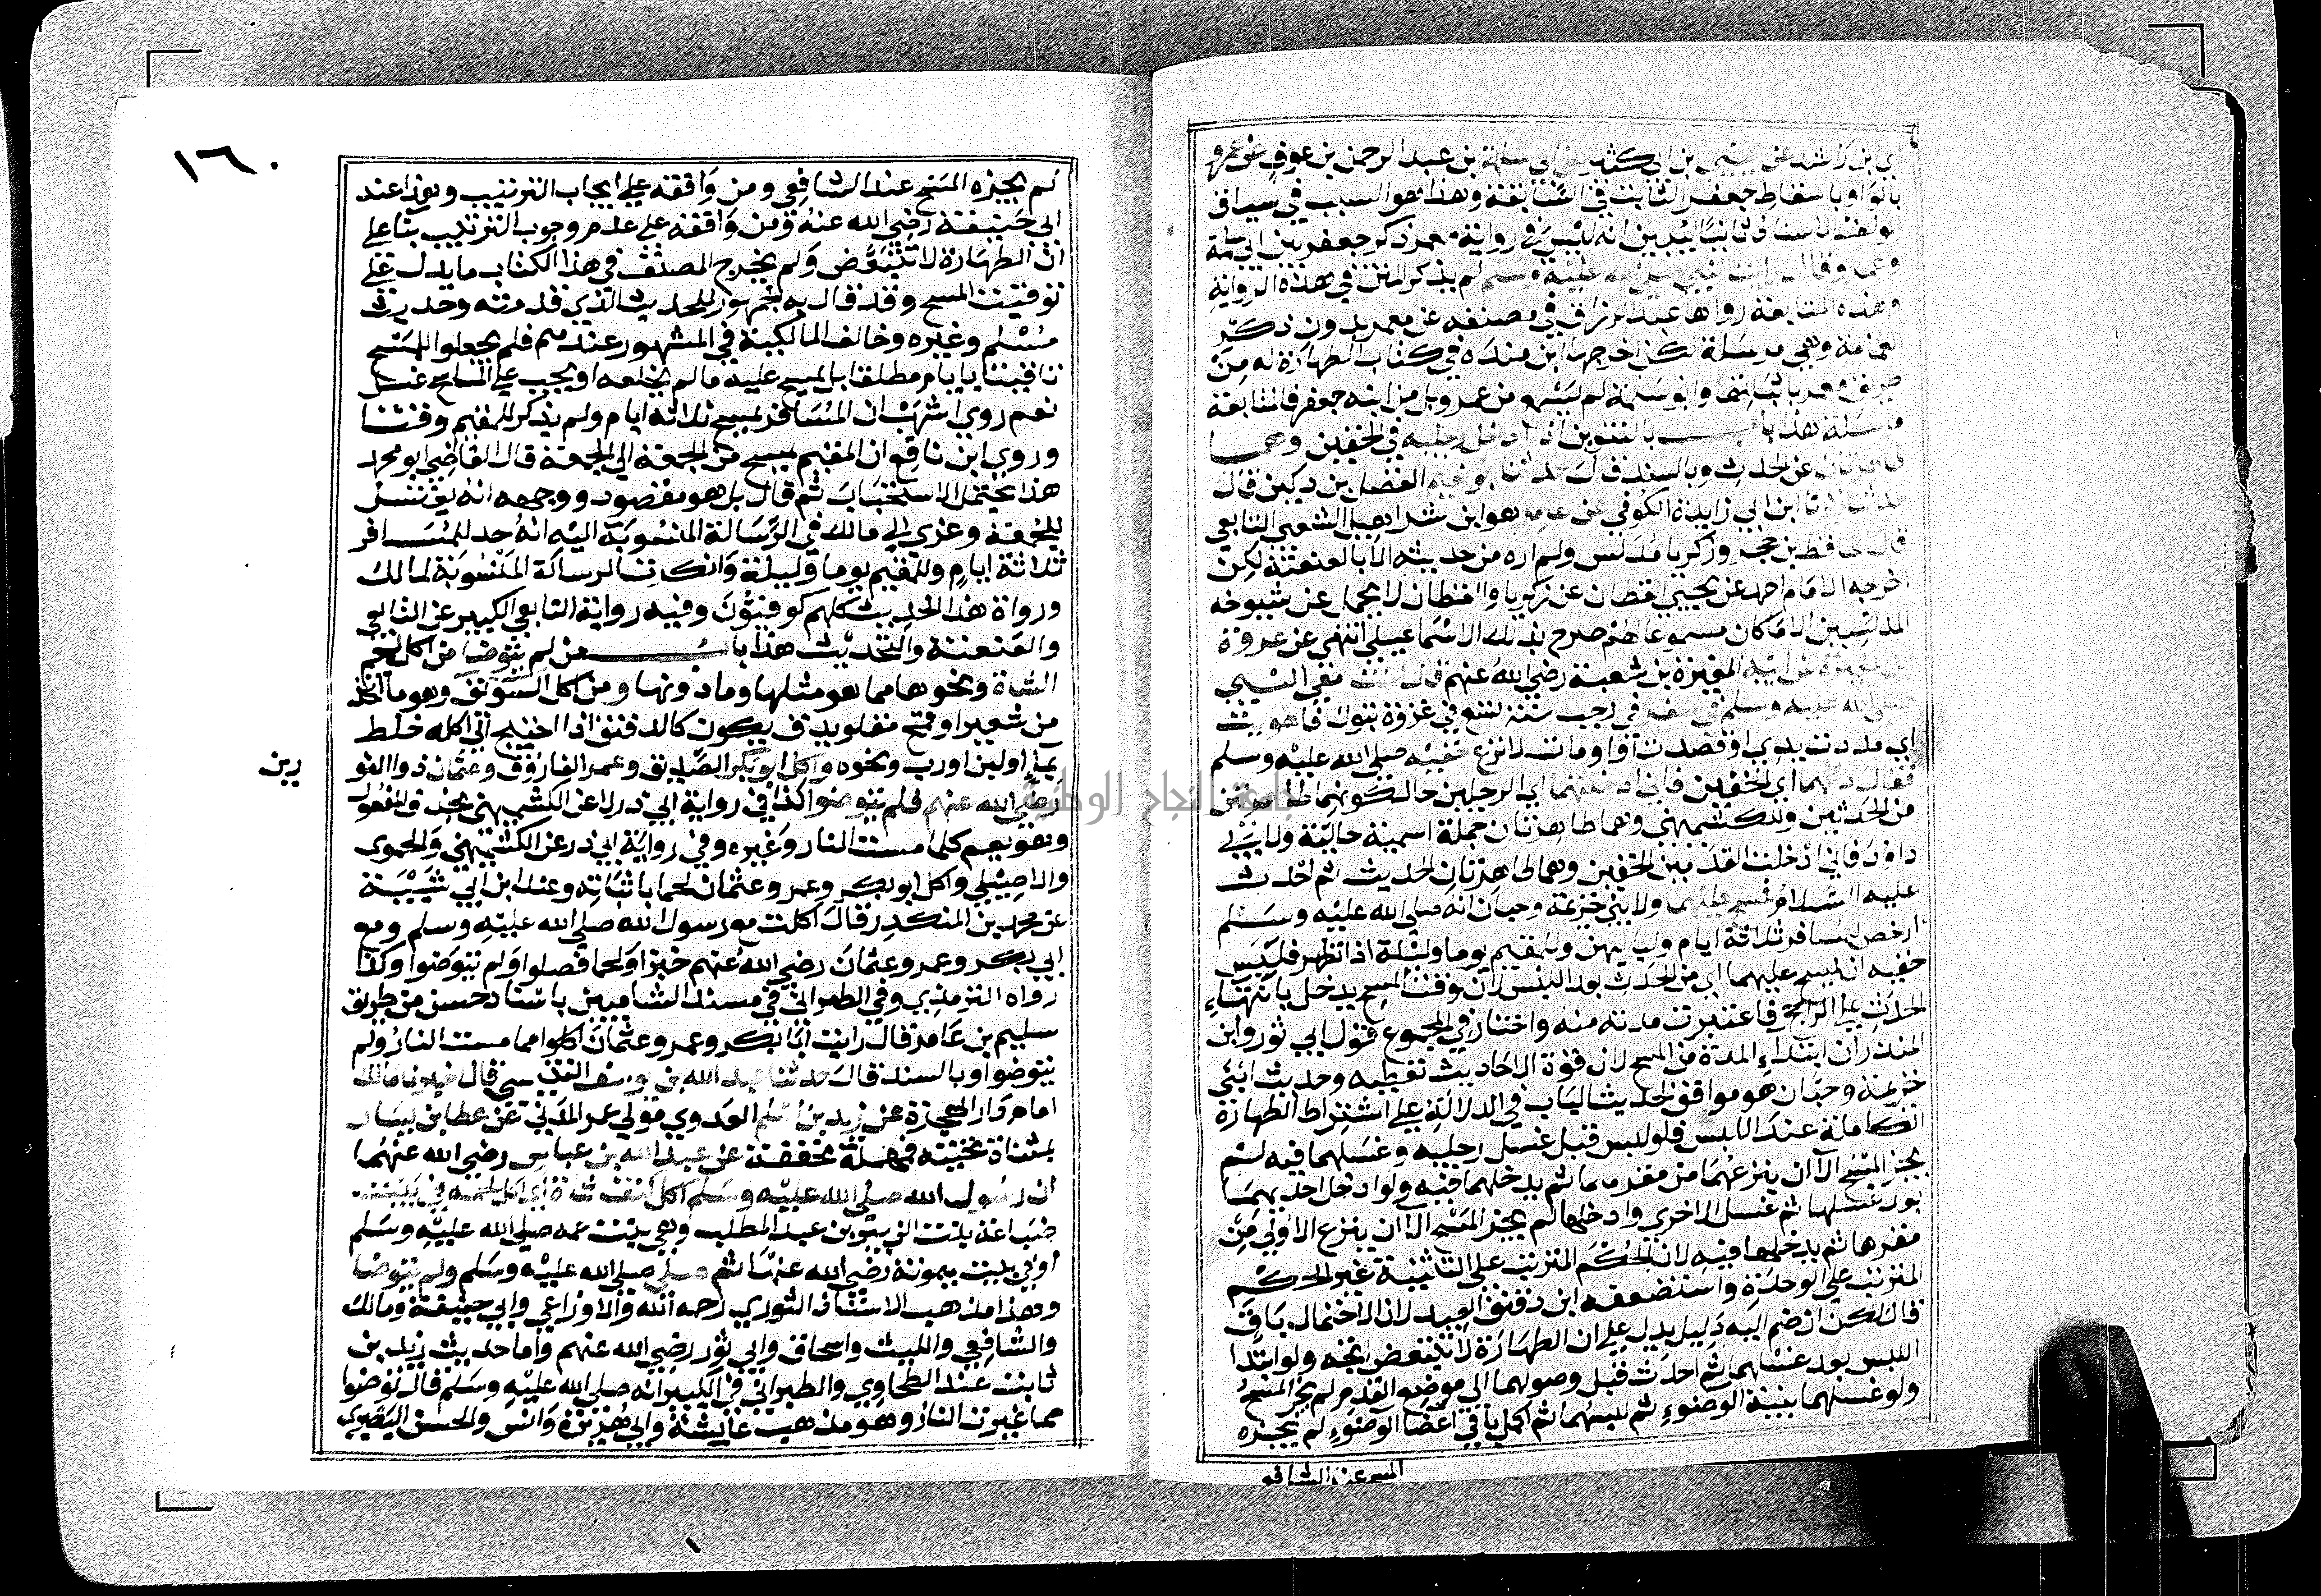 اي ابن راشد عن يحيي بن ابي كثير عن ابي سلمة بن عبد الرحمن بن عوف عن عمرو
بالواو باسقاط جعفر الثابت في السابقة وهذا هو السبب في سياق
المولف الاسناد ثانيا ليبين انه ليس في رواية معمر ذكر جعفر بين ابي سلمة
وعمرو قال رايت النبي صلي الله عليه وسلم لم يذكر المتن في هذه الرواية
وهذه المتابعة رواها عبد الرزاق في مصنفه عن معمر بدون ذكر
العمامة وهي مرسلة لكن اخرجها ابن منده في كتاب الطهارة له من
طريق معمر باثباتها وابو سلمة لم يسمع من عمرو بل من ابنه جعفر فالمتابعة
مرسلة هذا باب بالتنوين اذا ادخل رجليه في الخفين وهما
طاهرتان عن الحدث وبالسند قال حدثنا ابو نعيم الفضل بن دكين قال
حدثنا زكريا ابن ابي زايدة الكوفي عن عامر هو ابن شراحيل الشعبي التابعي
قال الحافظ بن حجر وزكريا مدلس ولم اره من حديثه الا بالعنعنة لكن
اخرجه الامام احمد عن يحيي القطان عن زكريا والقطان لا يحمل عن شيوخه
المدلسين الا ما كان مسموعا لهم صرح بذلك الاسماعيلي انتهي عن عروة
ابن المغيرة عن ابيه المغيرة بن شعبة رضي الله عنهم قال كنت مع النبي
صلي الله عليه وسلم في سفر في رجب سنة تسع في غزوة تبوك فاهويت
اي مددت يدي او قصدت او اومات لانزع خفيه صلي الله عليه وسلم
فقال دعهما اي الخفين فاني ادخلتهما اي الرجلين حال كونهما طاهرتين
من الحدثين وللكشميهني وهما طاهرتان جملة اسمية حالية ولابي
داود فاني ادخلت القدمين الخفين وهما طاهرتان الحديث ثم احدث
عليه السلام فمسح عليهما ولابني خزيمة وحبان انه صلي الله عليه وسلم
ارخص للمسافر ثلاثة ايام ولياليهن وللمقيم يوما وليلة اذا تطهر فلبس
خفيه ان يمسح عليهما اي من الحدث بعد اللبس لان وقت المسح يدخل بانتهاء
الحدث علي الراجح فاعتبرت مدته منه واختار في المجموع قول ابي ثور وابن
المنذر ان ابتداء المدة من المسح لان قوة الاحاديث تعطيه وحديث ابني
خزيمة وحبان هو موافق لحديث الباب في الدلالة علي اشتراط الطهارة
الكاملة عند اللبس فلو لبس قبل غسل رجليه وغسلهما فيه لم
يجز المسح الا ان ينزعهما من مقرهما ثم يدخلهما فيه ولو ادخل احديهما
بعد غسلها ثم غسل الاخري وادخلها لم يجز المسح الا ان ينزع الاولي من
مقرها ثم يدخلها فيه لان الحكم المترتب علي التثنية غير الحكم
المترتب علي الوحدة واستضعفه ابن دقيق العيد لان الاحتمال باق
قال لكن ان ضم اليه دليل يدل علي ان الطهارة لا تتبعض اتجه ولو ابتدا
اللبس بعد غسلهما ثم احدث قبل وصولهما الي موضع القدم لم يجز المسح
ولو غسلهما بنية الوضوء ثم لبسهما ثم اكمل باقي اعضا الوضوء لم يجزه
المسح عند الشافعي
١٦٠
لم يجزه المسح عند الشافعي ومن وافقه علي ايجاب الترتيب ويجوز عند
ابي حنيفة رضي الله عنه ومن وافقه علي عدم وجوب الترتيب بنا علي
ان الطهارة لا تتبعض ولم يخرج المصنف في هذا الكتاب ما يدل علي
توقيت المسح وقد قال به الجمهور للحديث الذي قدمته وحديث
مسلم وغيره وخالف المالكية في المشهور عندهم فلم يجعلوا للمسح
تاقيتا بايام مطلقا بل يمسح عليه ما لم يخلعه او يجب علي الماسح غسل
نعم روي اشهب ان المسافر يمسح ثلاثة ايام ولم يذكر للمقيم وقتا
وروي ابن نافع ان المقيم يمسح من الجمعة الي الجمعة قال القاضي ابو محمد
هذا يحتمل الاستحباب ثم قال بل هو مقصود ووجهه انه يغتسل
للجمعة وعزي الي مالك في الرسالة المنسوبة اليه انه حد للمسافر
ثلاثة ايام وللمقيم يوما وليلة وانكرت الرسالة المنسوبة لمالك
ورواة هذا الحديث كلهم كوفيون وفيه رواية التابعي الكبير عن التابعي
والعنعنة والتحديث هذا باب من لم يتوضا من اكل لحم
الشاة ونحوها مما هو مثلها وما دونها ومن اكل السويق وهو ما اتخذ
من شعير او قمح مقلو يدق فيكون كالدقيق اذا احتيج الي اكله خلط
بماء او لبن او رب ونحوه واكل ابو بكر الصديق وعمر الفاروق وعثمان ذو النو
رين
رضي الله عنهم فلم يتوضوا كذا في رواية ابي ذر الا عن الكشميهني بحذف المفعول
وهو يعم كلما مست النار وغيره وفي رواية ابي ذر عن الكشميهني والحموي
والاصيلي واكل ابو بكر وعمر وعثمان لحما باثباته وعند ابن ابي شيبة
عن محمد بن المنكدر قال اكلت مع رسول الله صلي الله عليه وسلم ومع
ابي بكر وعمر وعثمان رضي الله عنهم خبزا ولحما فصلوا ولم يتوضوا وكذا
رواه الترمذي وفي الطبراني في مسند الشاميين باسناد حسن من طريق
سليم بن عامر قال رايت ابا بكر وعمر وعثمان اكلوا مما مست النار ولم
يتوضوا وبالسند قال حدثنا عبد الله بن يوسف التنيسي قال اخبرنا مالك
امام دار الهجرة عن زيد بن اسلم العدوي مولي عمر المدني عن عطا بن يسار
بمثناة تحتية فمهملة مخففة عن عبد الله بن عباس رضي الله عنهما
ان رسول الله صلي الله عليه وسلم اكل كتف شاة اي اكل لحمه في بيت
ضباعة بنت الزبير بن عبد المطلب وهي بنت عمه صلي الله عليه وسلم
او في بيت ميمونة رضي الله عنها ثم صلي صلي الله عليه وسلم ولم يتوضا
وهذا مذهب الاستاذ الثوري رحمه الله والاوزاعي وابي حنيفة ومالك
والشافعي والليث واسحاق وابي ثور رضي الله عنهم واما حديث زيد بن
ثابت عند الطحاوي والطبراني في الكبير انه صلي الله عليه وسلم قال توضوا
مما غيرت النار وهو مذهب عايشة وابي هريرة وانس والحسن البصري
جامعة النجاح الوطنية